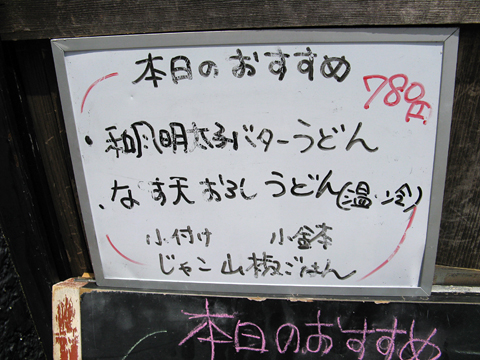 本日のおすすめ
780円
・和風明太子バターうどん
・なす天おろしうどん(温・冷)
小付け 小鉢
じゃこ山椒ごはん
本日のおすすめ